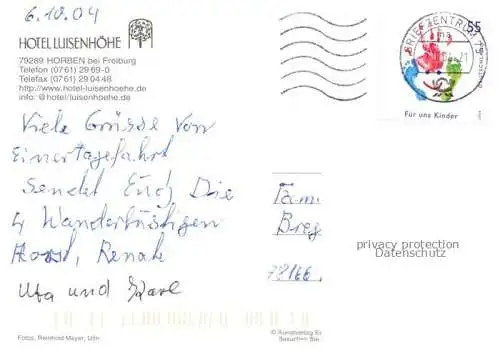 6.10.04
HOTEL LUISENHÖHE
79289 HORBEN bei Freiburg
Telefon (0761) 2969-0
Telefax (0761) 290448
http://www.hotel-luisenhoehe.de
info@hotel/luisenhoehe.de
55
BRIEFZENTRUM 79
Für uns Kinder
Viele Grüsse von
Einertagefahrt
sendet Euch Die
4 Wanderlüstigen
Horst, Renate
Uta und
Fam.
Breg
78166
privacy protection
Datenschutz
Fotos: Reinhold Mayer, Ulm
© Kunstverlag Er
Besuchen Sie